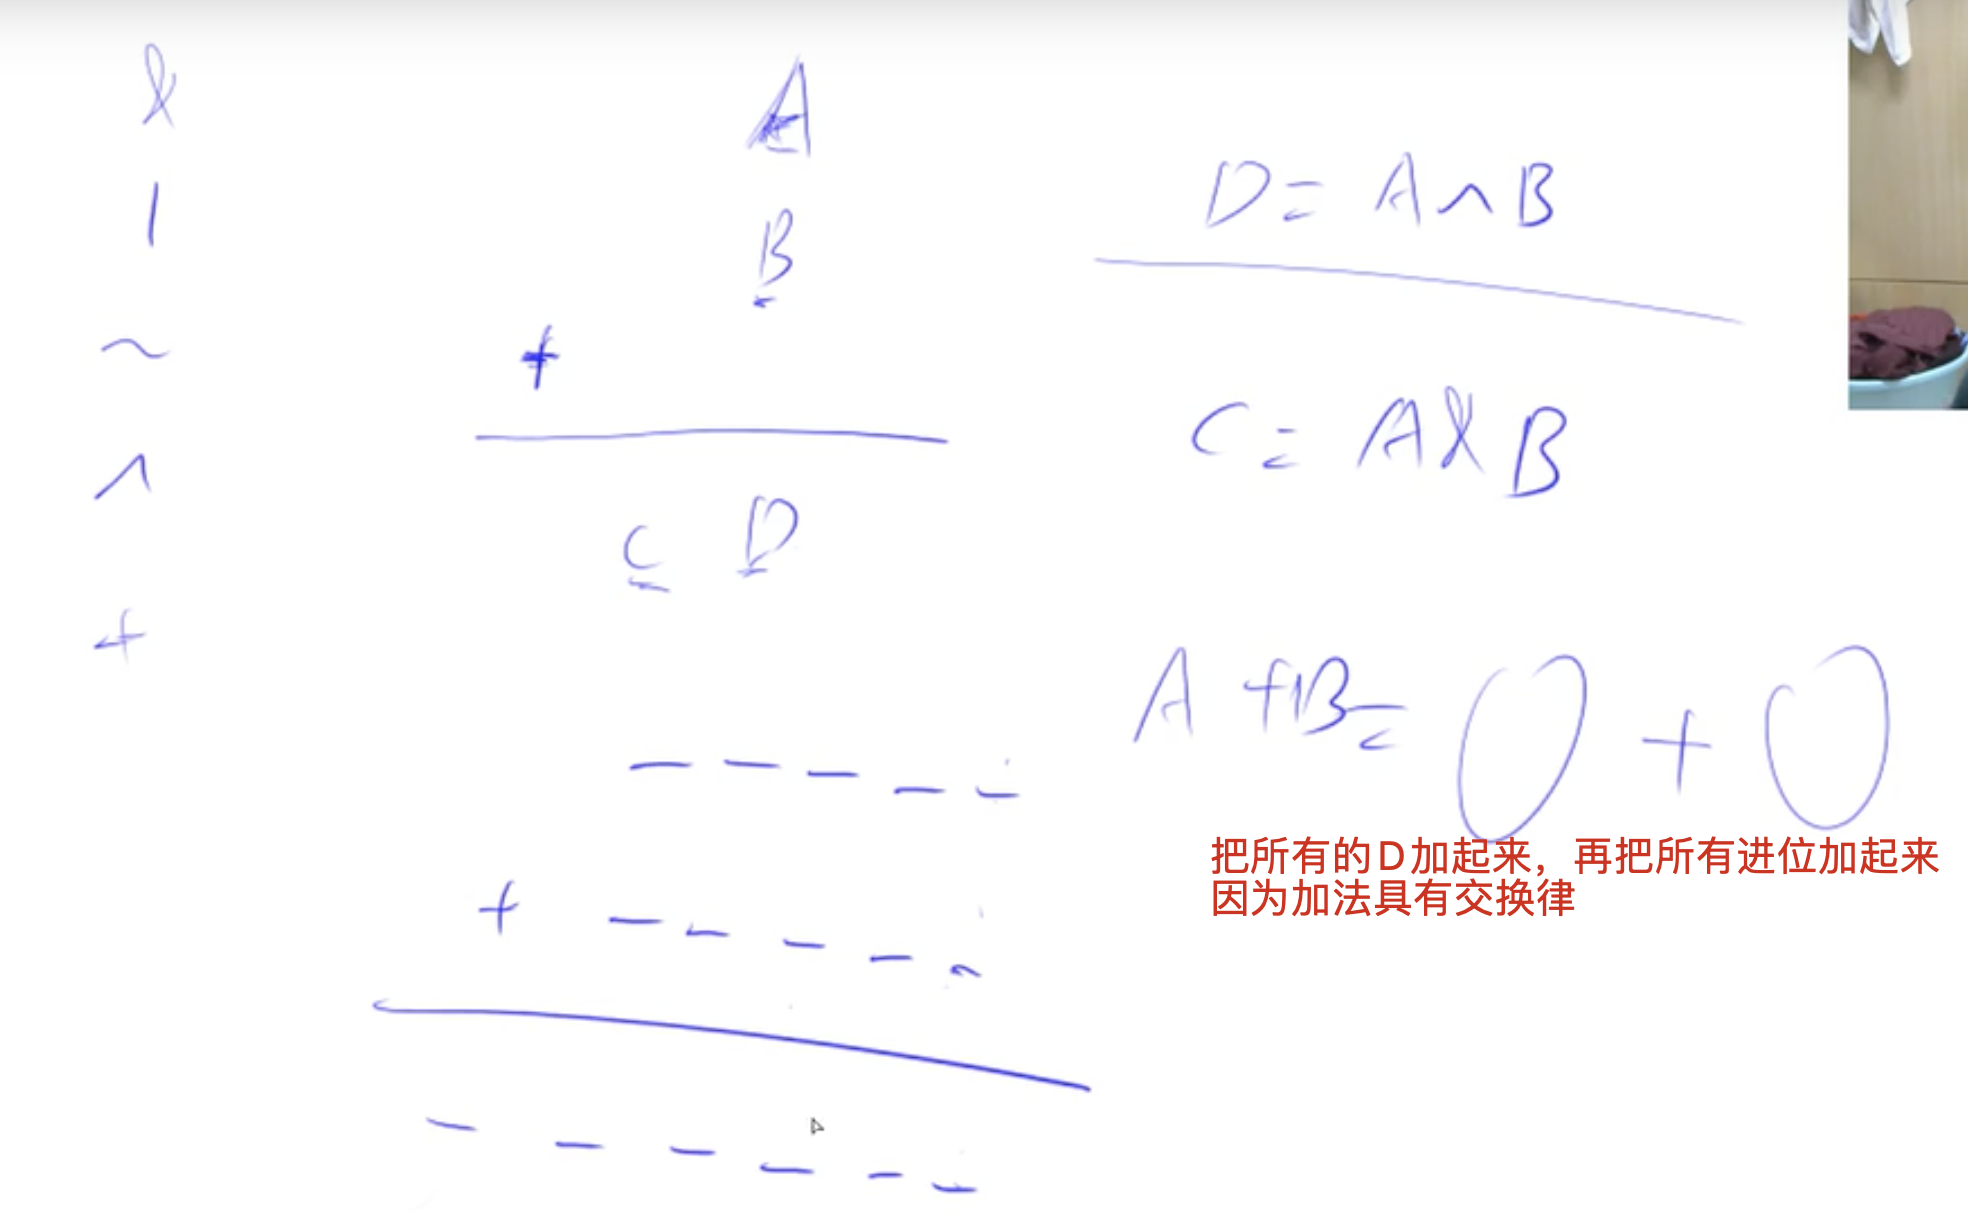 &
|
~
^
+
A
B
+
C D
D = A ^ B
C = A & B
A + B = O + O
+
把所有的D加起来，再把所有进位加起来
因为加法具有交换律